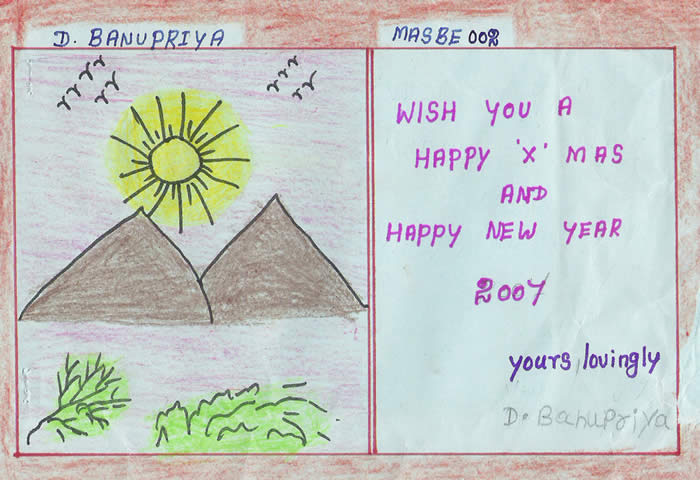 D. BANUPRIYA
MASBE 002
WISH YOU A
HAPPY 'X' MAS
AND
HAPPY NEW YEAR
2007
yours lovingly
D. BanuPriya